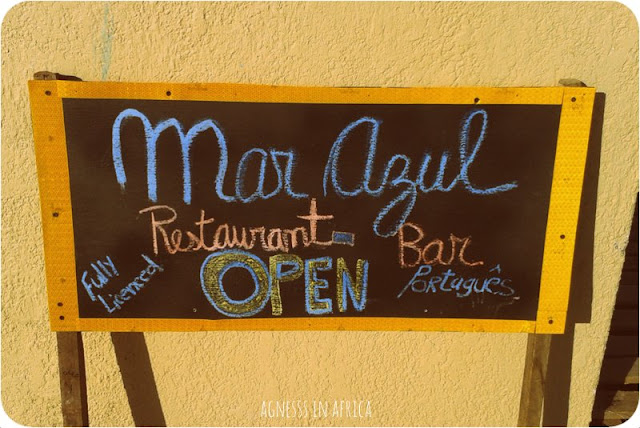 Mar Azul
Restaurant - Bar
Fully Licenced
OPEN
Português
AGNESSS IN AFRICA